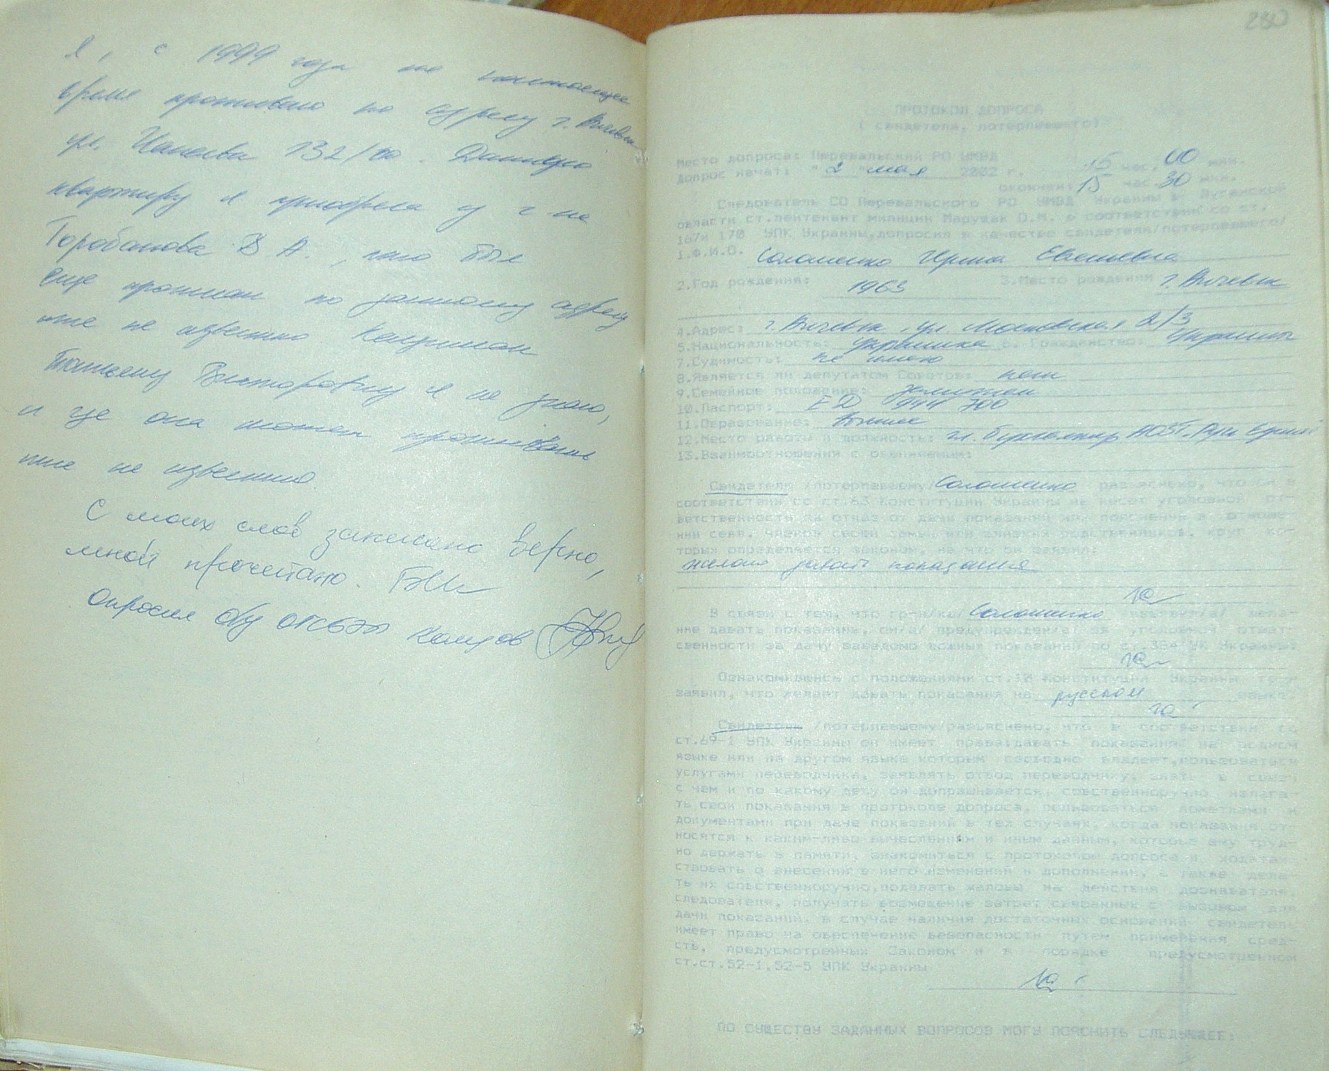 Я, с 1999 года по настоящее
время проживаю по адресу г.
ул. Чапаева 132/ . Данную
квартиру я приобрела у г-на
Горобцова В А., кто был
еще прописан по данному адресу
мне не известно
Викторовну я не знаю,
и где она может проживать
мне не известно.
С моих слов записано верно,
мной прочитано.
Опросил о/у ОГСБЭП
230
ПРОТОКОЛ ДОПРОСА
( свидетеля, потерпевшего)
Место допроса: Перевальский РО УМВД
Допрос начат: "2" мая 2002 г. 15 час. 00 мин.
окончен: 15 час 30 мин.
Следователь СО Перевальского РО УМВД Украины в Луганской
области ст.лейтенант милиции Марущак О.М. в соответствии со ст.
167и 170 УПК Украины,допросил в качестве свидетеля/потерпевшего/
1.Ф.И.О. Соломенко Ирина Евгеньевна
2.Год рождения: 1963 3.Место рождения г.
4.Адрес: г. ул. Московская 2/3
5.Национальность: украинка 6. Гражданство: Украины
7.Судимость: не имею
8.Является ли депутатом Советов: нет
9.Семейное положение: замужем
10.Паспорт: ЕО 944 700
11.Образование: Высшее
12.Место работы и должность: гл. бухгалтер
13.Взаимоотношения с обвиняемым:
Свидетелю /потерпевшему/ Соломенко разъяснено, что он в
соответствии со ст.63 Конституции Украины не несет уголовной от-
ветственности за отказ от дачи показаний или пояснений в отноше-
нии себя, членов своей семьи или близких родственников, круг ко-
торых определяется законом, на что он заявил:
желаю давать показания
В связи с тем, что гр-н/ка/ Соломенко изъявил/а/ жела-
ние давать показания, он/а/ предупрежден/а/ об уголовной ответ-
ственности за дачу заведомо ложных показаний по ст.384 УК Украины:
Ознакомившись с положениями ст.10 Конституции Украины
заявил, что желает давать показания на русском языке.
Свидетелю /потерпевшему/разъяснено, что в соответствии со
ст.69-1 УПК Украины он имеет право:давать показания на родном
языке или на другом языке которым свободно владеет,пользоваться
услугами переводчика, заявлять отвод переводчику, знать в связи
с чем и по какому делу он допрашивается, собственноручно излага-
ть свои показания в протоколе допроса, пользоваться пометками и
документами при даче показаний в тех случаях, когда показания от-
носятся к каким-либо вычислениям и иным данным,которые ему труд-
но держать в памяти, знакомиться с протоколом допроса и ходатай-
ствовать о внесении в него изменений и дополнений, а также дела-
ть их собственноручно,подавать жалобы на действия дознавателя,
следователя, получать возмещение затрат связанных с вызовом для
дачи показаний. В случае наличия достаточных оснований свидетель
имеет право на обеспечение безопасности путем применения сред-
ств, предусмотренных Законом и в порядке предусмотренном
ст.ст.52-1,52-5 УПК Украины
ПО СУЩЕСТВУ ЗАДАННЫХ ВОПРОСОВ МОГУ ПОЯСНИТЬ СЛЕДУЮЩЕЕ: